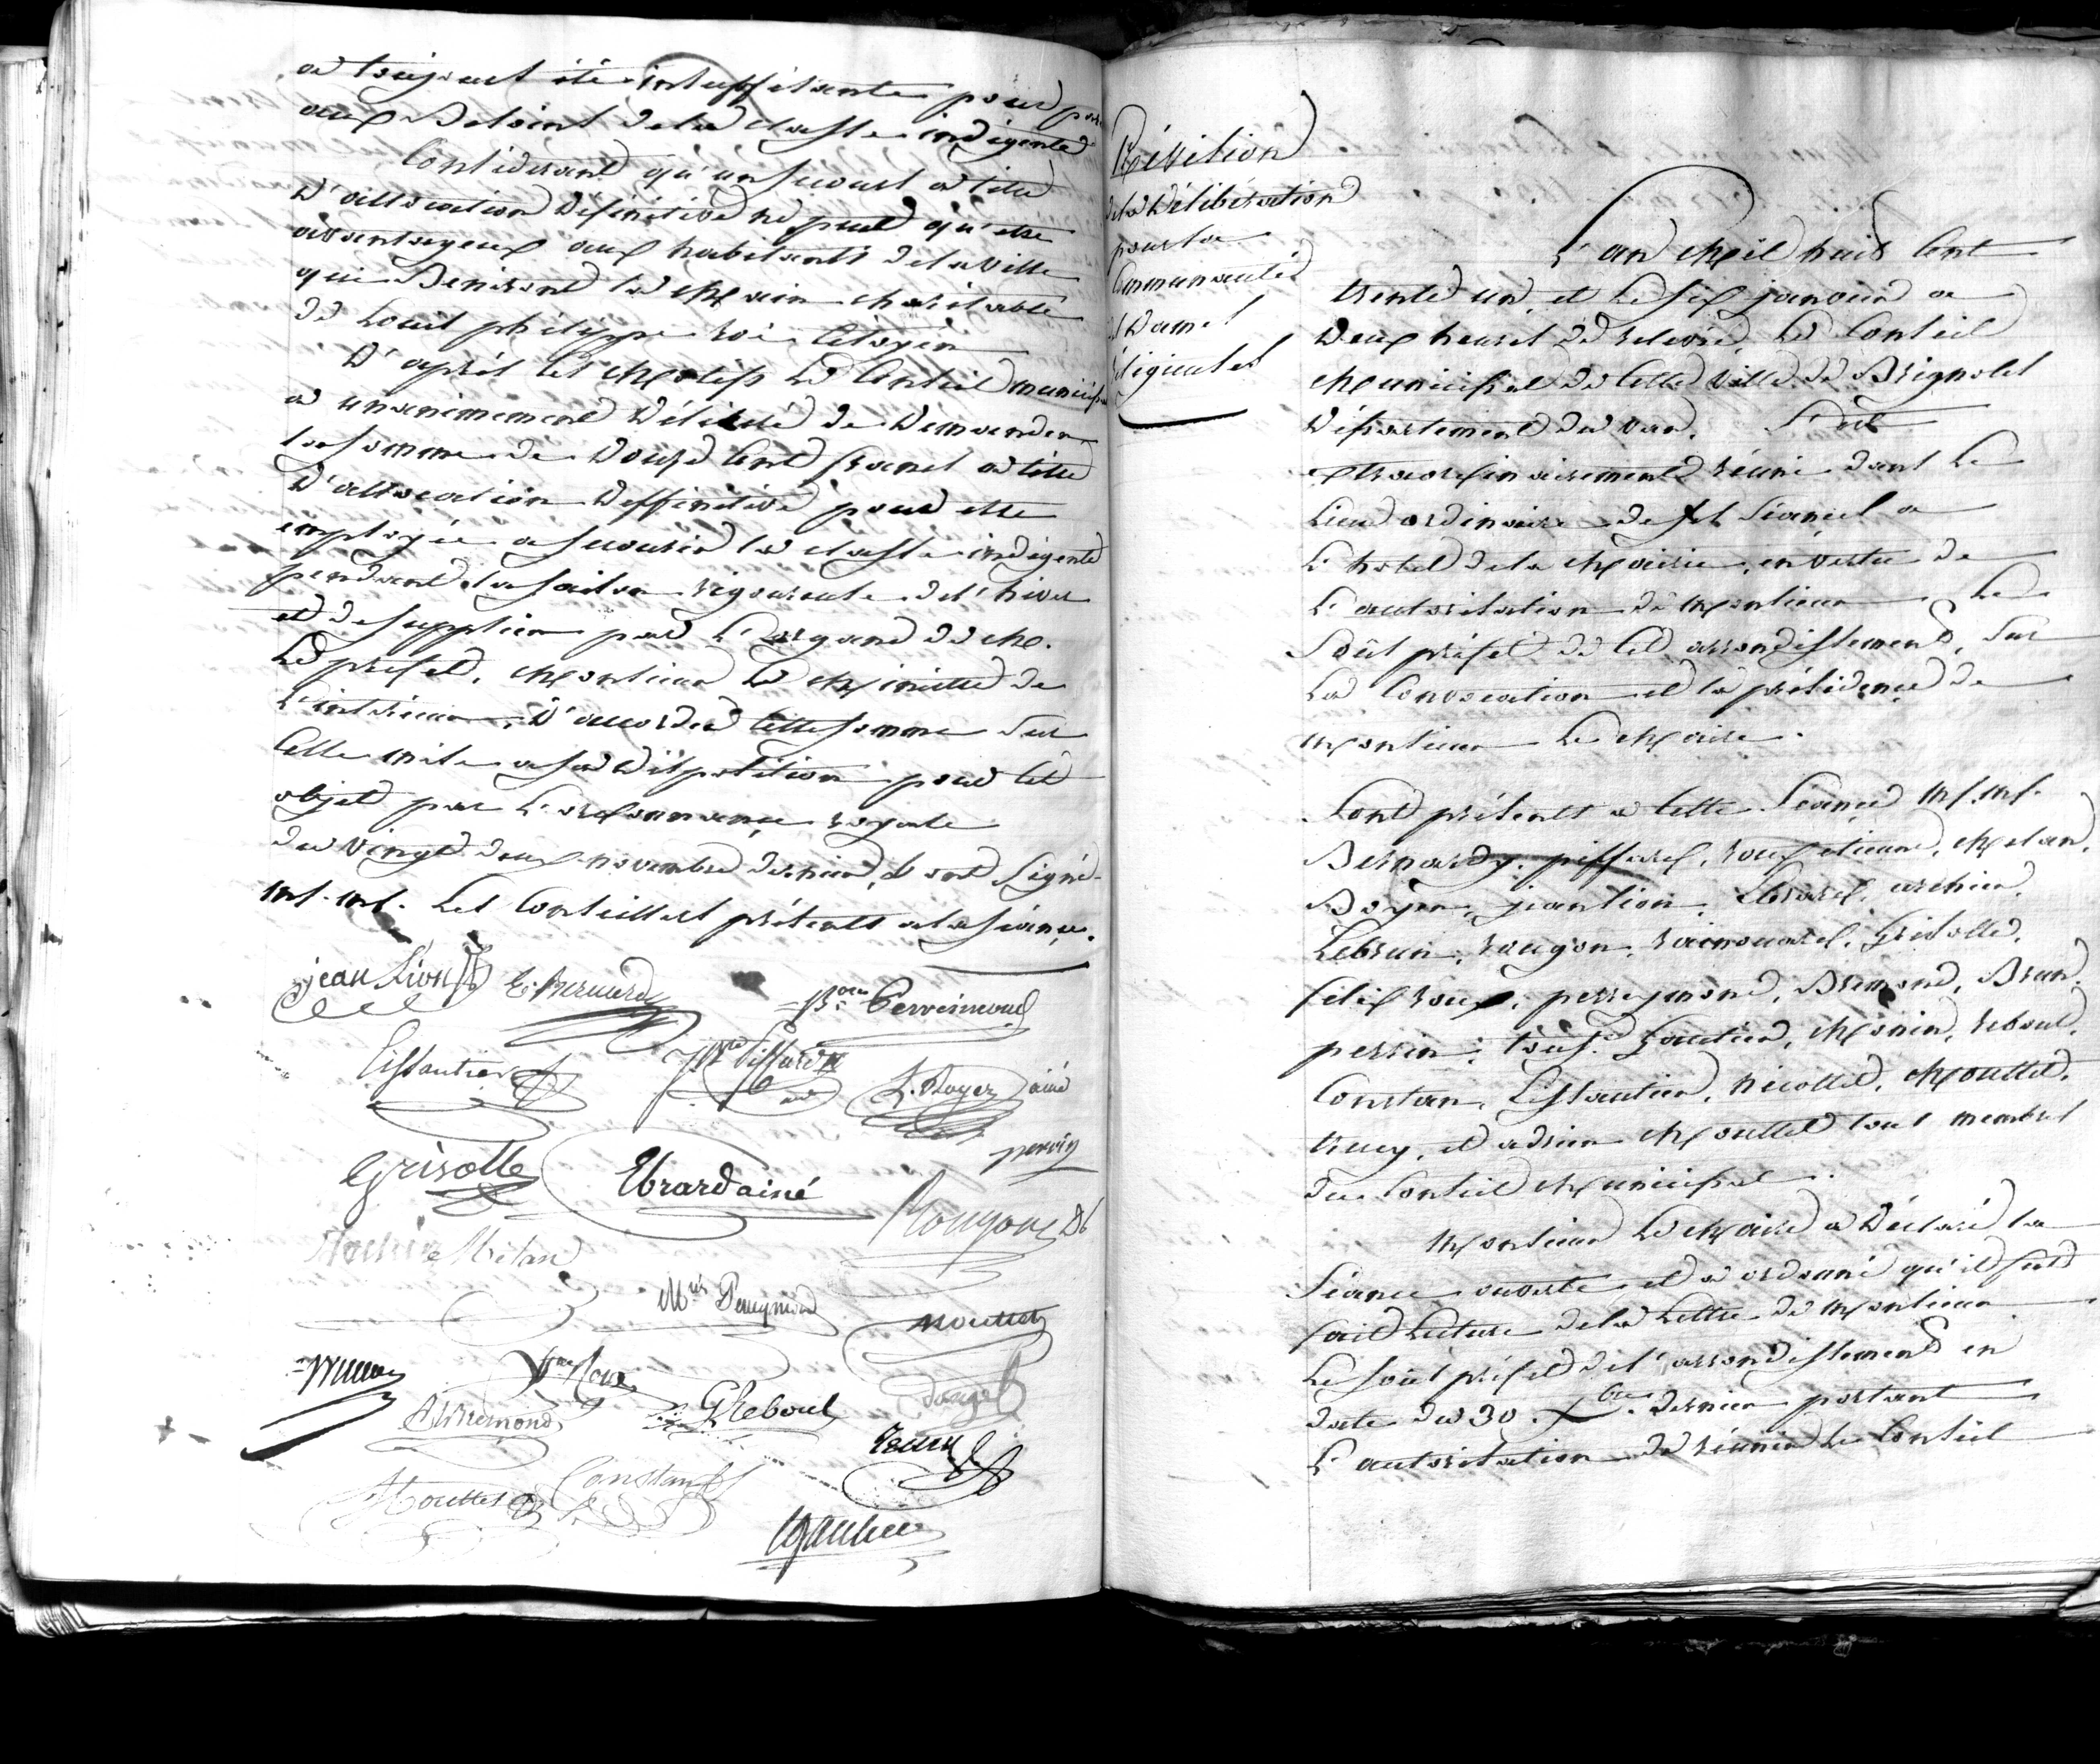 a toujours été insuffisante pour
aux Besoins de la classe indigente
Considerant qu'un secours a titre
D'allocation définitive ne peut qu'être
avantageux aux habitants de la Ville
qui Beniront la Main charitable
de Louis philippe roi Citoyen
D'après ces Motifs Le Conseil municipal
a unanimement Délibéré de Demander
la somme de Douze Cent francs a titre
D'allocation Deffinitive pour être
employée a secourir la classe indigente
pendant la saison rigoureuse de l'hiver
et de supplier par L'organe de M.
Le prefet, Monsieur Le Ministre de
L'intérieur, D'accorder cette somme sur
Celle mise a sa Disposition pour Cet
objet par L'ordonnance royale
du Vingt deux novembre dernier, & ont Signé
M.M. Les Conseillers présents a la séance.
jean Lion E. Bernardy
Lissautier Piffard L. Boyer ainé
Grisolle Ebrard ainé perrin
Rougon
Melan
Pereymond Mouttet
Roux
Bremond G Reboul
Mouttet Constans
Révision
de la Délibération
pour la
Communauté
des Dames
Religieuses
L'an Mil huit Cent
trente un, et Le six janvier a
Deux heures de relevée, Le Conseil
Municipal de Cette Ville de Brignoles
Département du Var. S'est
extraordinairement réuni dans Le
Lieu ordinaire de ses Séances a
L'hotel de la Mairie, en Vertu de
L'autorisation de Monsieur Le
Sous préfet de Cet arrondissement, Sur
La Convocation et la présidence de
Monsieur Le Maire.
Sont présents a Cette Séance M.M.
Bernardy, piffard, roux etienne, Melan,
Boyer, jeanlion, Ebrard, archier,
Lebrun, rougon, raimouard, Grisolle,
félix roux, perreymond, Bremond, Brun,
perrin, Gautier, Monin, reboul,
Constans, Lissautier, nicollet, Mouttet,
trucy, et adrien Mouttet tous membres
du Conseil Municipal.
Monsieur Le Maire a Déclaré la
Séance ouverte et a ordonné qu'il fut
fait Lecture de la Lettre de Monsieur
Le Sous préfet de l'arrondissement en
date du 30 Xbre dernier portant
L'autorisation de réunir Le Conseil